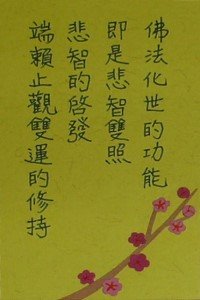 佛法化世的功能
即是悲智雙照
悲智的啓發
端賴止觀雙運的修持